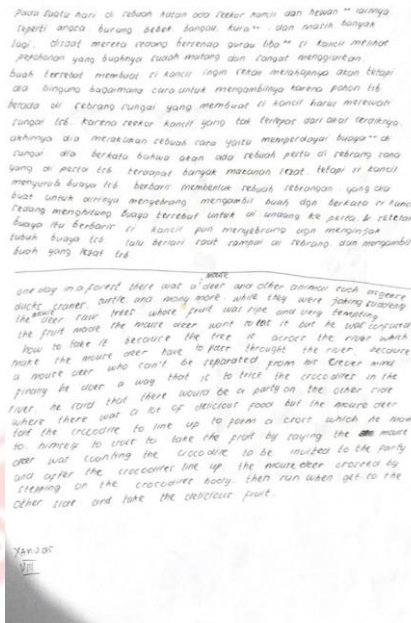 pada suatu hari di sebuah hutan ada seekor kancil dan hewan" lainnya
seperti angsa, burung bebek, bangau, kura", dan masih banyak
lagi. disaat mereka sedang bersenda gurau tiba" si kancil melihat
pepohonan yang buahnya sudah matang dan sangat menggiurkan.
buah tersebut membuat si kancil ingin sekali melahapnya akan tetapi
dia bingung bagaimana cara untuk mengambilnya karena pohon trb
berada di sebrang sungai yang membuat si kancil harus melewati
sungai tsb. karena seekor kancil yang tak terlepas dari akal cerdiknya.
akhirnya dia melakukan sebuah cara yaitu memperdayai buaya" di
sungai dia berkata bahwa akan ada sebuah pesta di sebrang sana
yang di pesta trb terdapat banyak makanan lezat. tetapi si kancil
menyuruh buaya trb. berbaris membentuk sebuah sebrangan. yang dia
buat untuk dirinya menyebrang mengambil buah dgn berkata si kancil
sedang menghitung buaya tersebut untuk di undang ke pesta. & setelah
buaya itu berbaris si kancil pun menyebrang dgn menginjak
tubuh buaya trb. lalu berlari saat sampai di sebrang. dan mengambil
buah yang lezat trb
one day in a forest there was a mouse deer and other animal such as geese
ducks, cranes, turtle, and many more. while they were joking suddenly
the mouse deer saw trees whose fruit was ripe and very tempting
the fruit made the mouse deer want to eat it but he was confused
how to take it because the tree is across the river which
make the mouse deer have to pass throught the river. because
a mouse deer who can't be separated from his clever mind
finally he does a way that is to trick the crocodiles in the
river. he said that there would be a party on the other side
where there was a lot of delicious food but the mouse deer
told the crocodile to line up to form a cross which he made
to himself to cross to take the fruit by saying the mouse
deer was counting the crocodile to be invited to the party
and after the crocodiles line up. the mouse deer crossed by
stepping on the crocodiles body. then run when get to the
other side and take the delicious fruit.
VIII